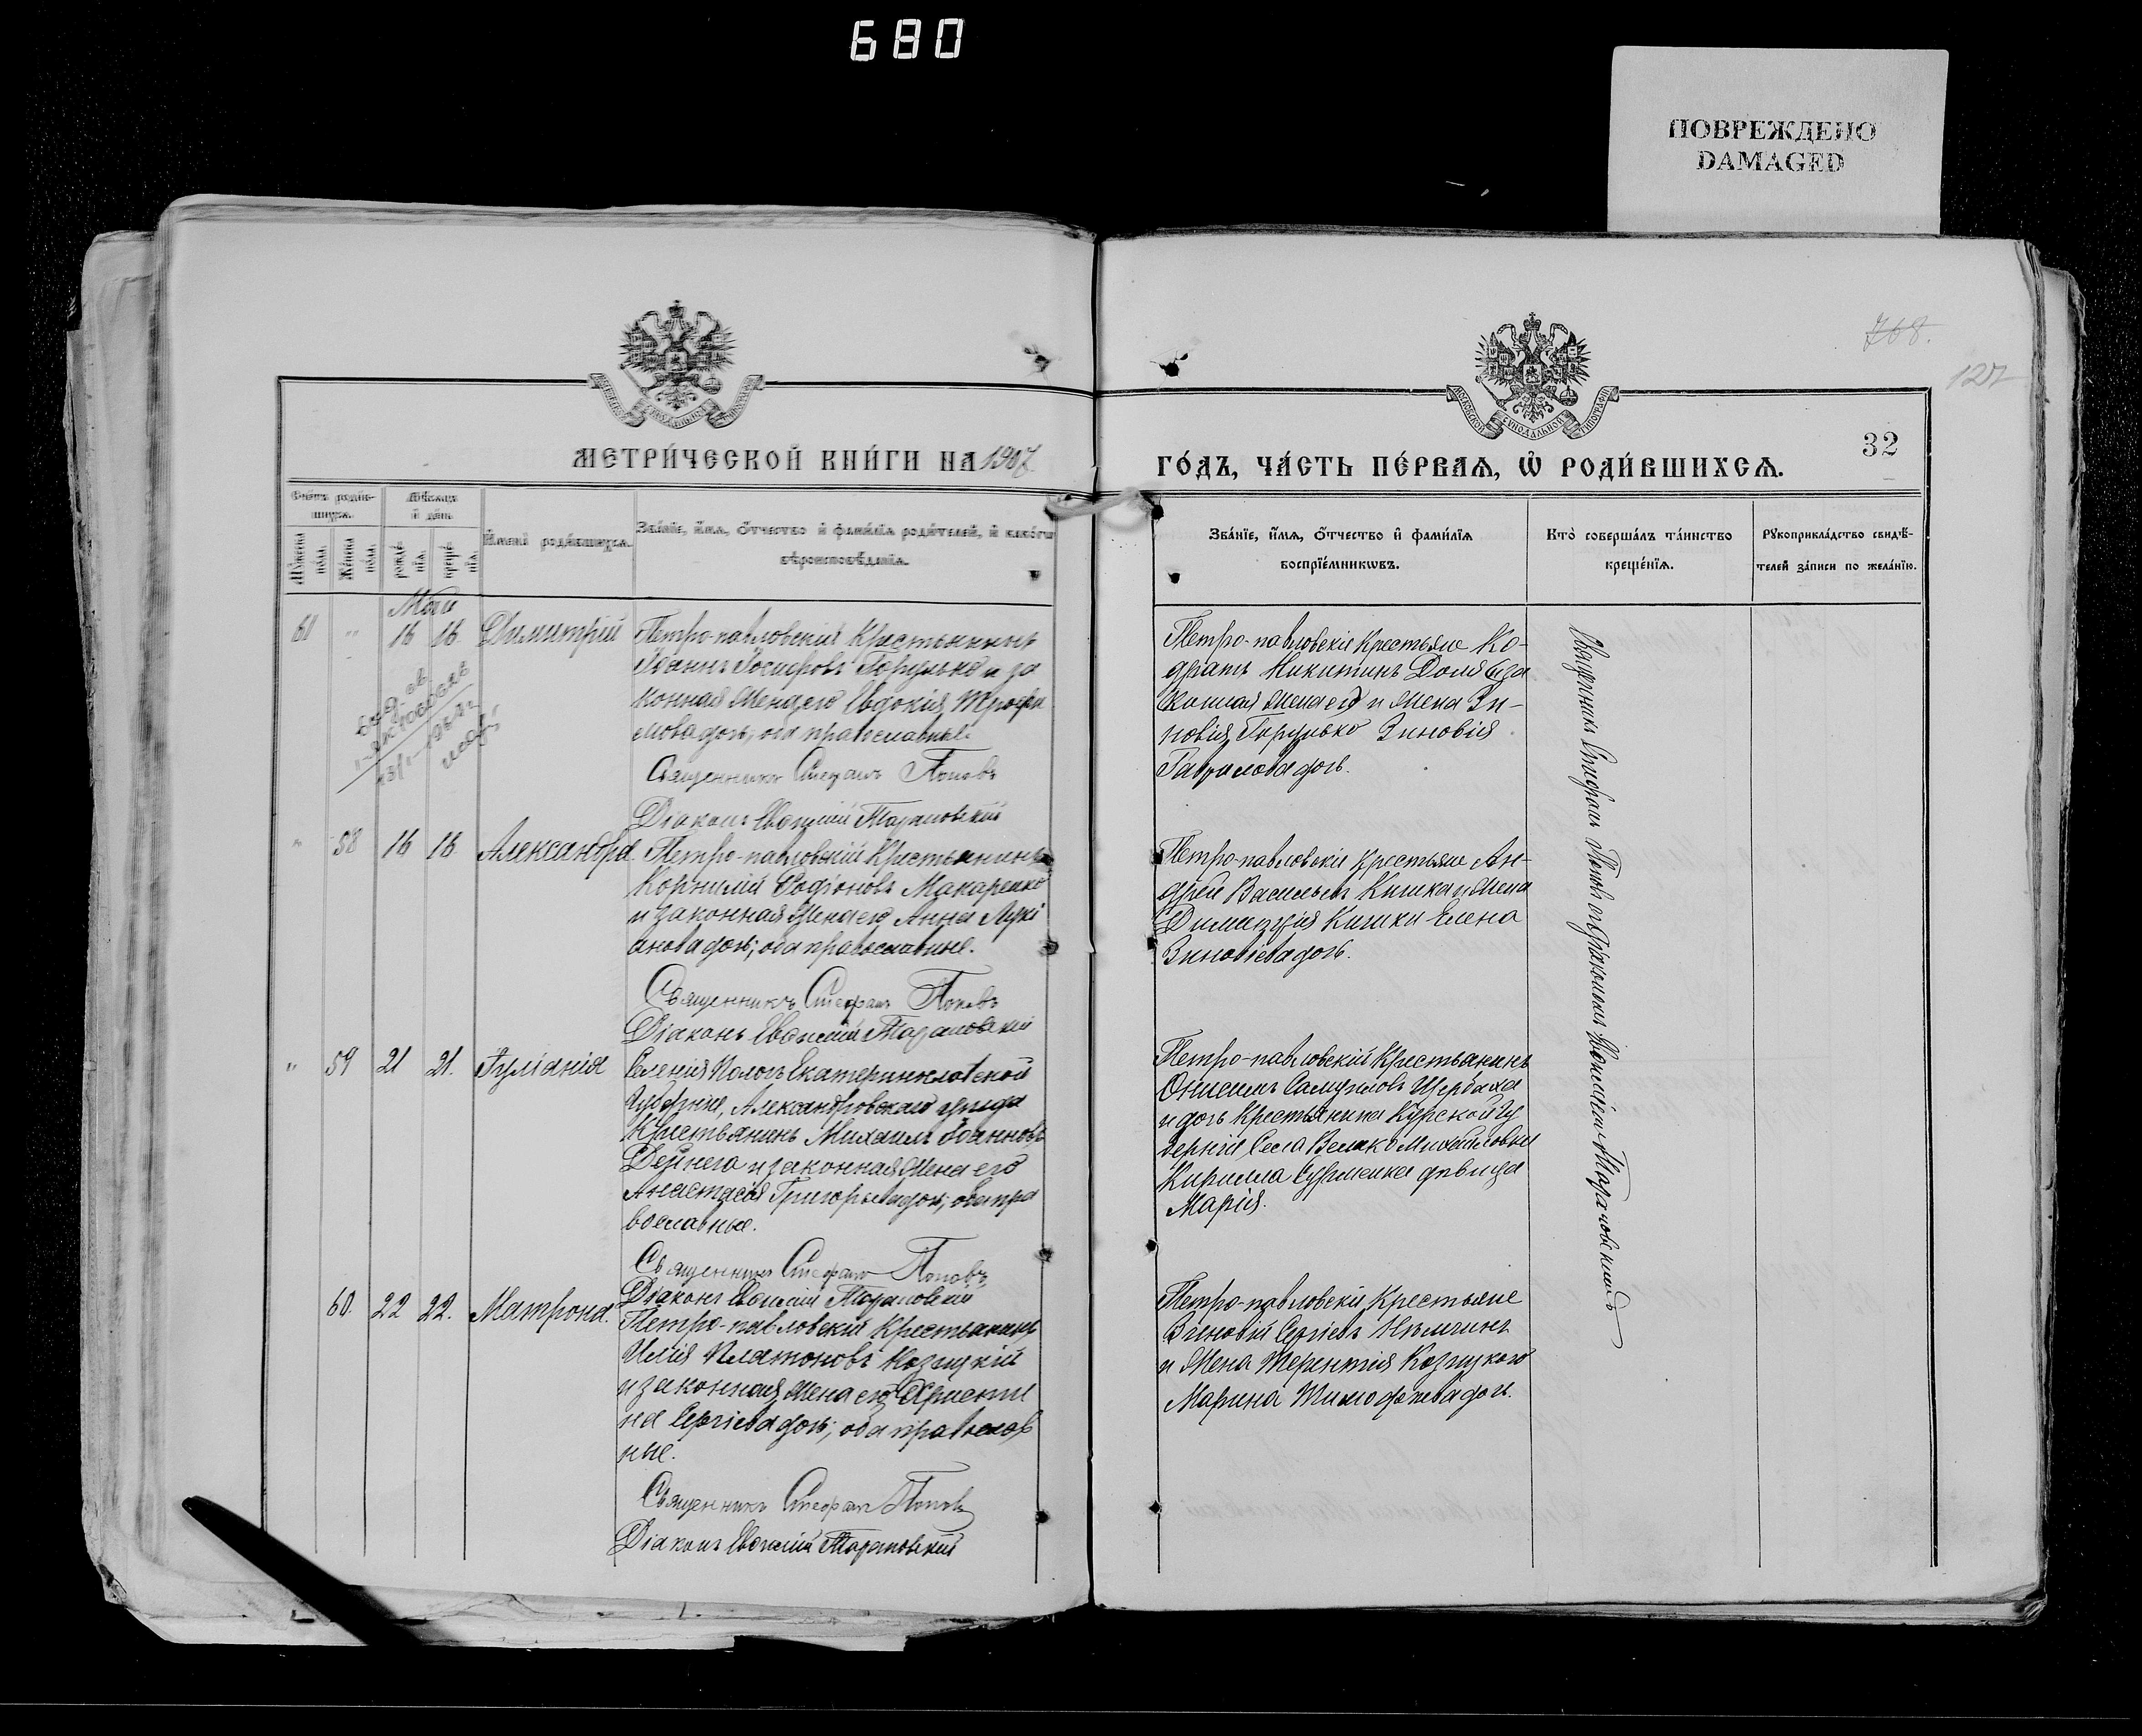 680
ПОВРЕЖДЕНО
DAMAGED
768.
127
32
МЕТРИ́ЧЕСКОЙ КНИ́ГИ НА 1907
ГО́ДЪ, ЧА́СТЬ ПЕ́РВАѦ, Ѡ҆ РОДИ́ВШИХСѦ.
МОСКОВСКОЙ СѴНОДАЛЬНОЙ ТИПОГРАФІИ
Сче́тъ роди́в-
шихсѧ.
Мѣ́сѧцъ
и҆ де́нь
Му́жеска по́ла.
Же́нска по́ла.
рожде́-
нїѧ.
креще́-
нїѧ.
И҆мена̀ роди́вшихсѧ.
Зва́нїе, и҆́мѧ, ѻ҆́тчество и҆ фами́лїѧ роди́телей, и҆ како́гѡ
вѣроисповѣ́данїѧ.
Зва́нїе, и҆́мѧ, ѻ҆́тчество и҆ фами́лїѧ
воспрїе́мникѡвъ.
Кто̀ соверша́лъ та́инство
креще́нїѧ.
Рꙋкоприкла́дство свидѣ́-
телей за́писи по жела́нїю.
Май
61 " 16 16 Димитрій
Петро-павловскій крестьянинъ
Іоаннъ Іосифовъ Горулько и за
конная жена его Евдокія Трофи
мова дочь, оба православные
Священникъ Стефанъ Поповъ
Діаконъ Евгеній Тарановскій
Петро-павловскіе крестьяне Ко-
дратъ Никитинъ Доля и за
конная жена его и жена Зи-
новія Горулько Зиновія
Гаврилова дочь.
" 58 16 16 Александра
Петро-павловскій крестьянинъ
Корнилій Родіоновъ Макаренко
и законная жена его Анна Луки
анова дочь; оба православные.
Священникъ Стефанъ Поповъ
Діаконъ Евгеній Тарановскій
Петро-павловскіе крестьяне Ан-
дрей Васильевъ Кишка и жена
Димитрія Кишки Елена
Зиновіева дочь.
" 59 21 21. Іуліанія
Селенія Пологъ Екатеринославской
губерніи, Александровскаго уезда
крестьянинъ Михаилъ Іоанновъ
Дейнега и законная жена его
Анастасія Григорьева дочь; оба пра
вославные.
Священникъ Стефанъ Поповъ
Діаконъ Евгеній Тарановскій
Петро-павловскій крестьянинъ
Онисимъ Самуиловъ Щербаха
и дочь крестьянина Курской гу
берніи села Велико Михайловки
Кирилла девица
Марія.
60. 22 22. Матрона.
Петро-павловскій крестьянинъ
Илія Платоновъ Козицкій
и законная жена его Христи
на Сергіева дочь; оба православ
ные.
Священникъ Стефанъ Поповъ
Діаконъ Евгеній Тарановскій
Петро-павловскіе крестьяне
Зиновій Сергіевъ Нѣмчинъ
и жена Терентія Козицкого
Марина Тимофеева дочь.
Священникъ Стефанъ Поповъ съ діакономъ Евгеніемъ Тарановскимъ